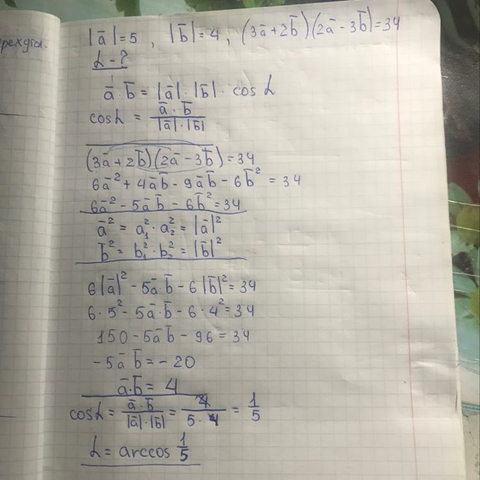 |a̅|=5 , |b̅|=4, (3a̅+2b̅)(2a̅-3b̅)=34
L-?
a̅·b̅=|a̅|·|b̅|·cosL
cosL=a̅·b̅/|a̅|·|b̅|
(3a̅+2b̅)(2a̅-3b̅)=34
6a̅²+4a̅b̅-9a̅b̅-6b̅²=34
6a̅²-5a̅b̅-6b̅²=34
a̅²=a₁²·a₂²=|a̅|²
b̅²=b₁²·b₂²=|b̅|²
6|a̅|²-5a̅·b̅-6|b̅|²=34
6·5²-5a̅·b̅-6·4²=34
150-5a̅b̅-96=34
-5a̅b̅=-20
a̅·b̅=4
cosL=a̅·b̅/|a̅|·|b̅|=4/5·4=1/5
L=arccos 1/5